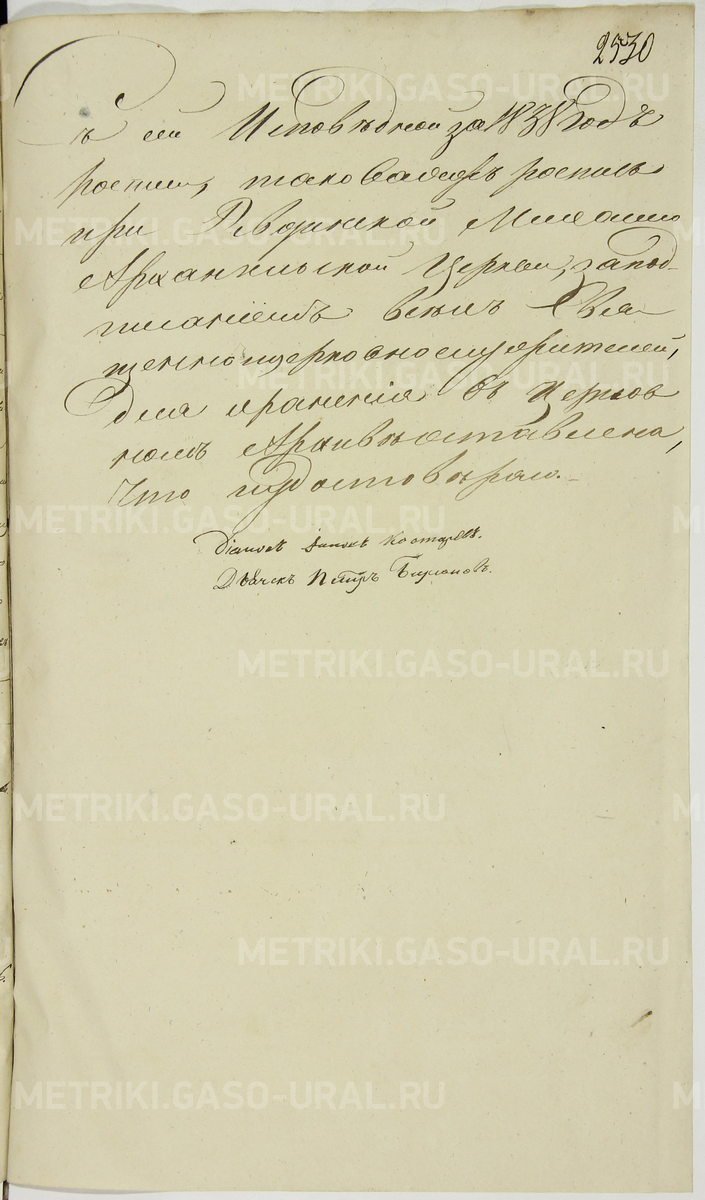 2530
Съ сей Исповѣдной за 1838 годъ
росписи, таковаяжъ роспись
при Ревдинской Михаило
Архангельской Церкви, запод-
писаніемъ всѣхъ Свя
щенноцерковнослужителей,
для храненія въ Церков
номъ Архивѣ оставлена,
что удостовѣряю.
Діаконъ Костаревъ.
Дьячекъ Петръ
METRIKI.GASO-URAL.RU